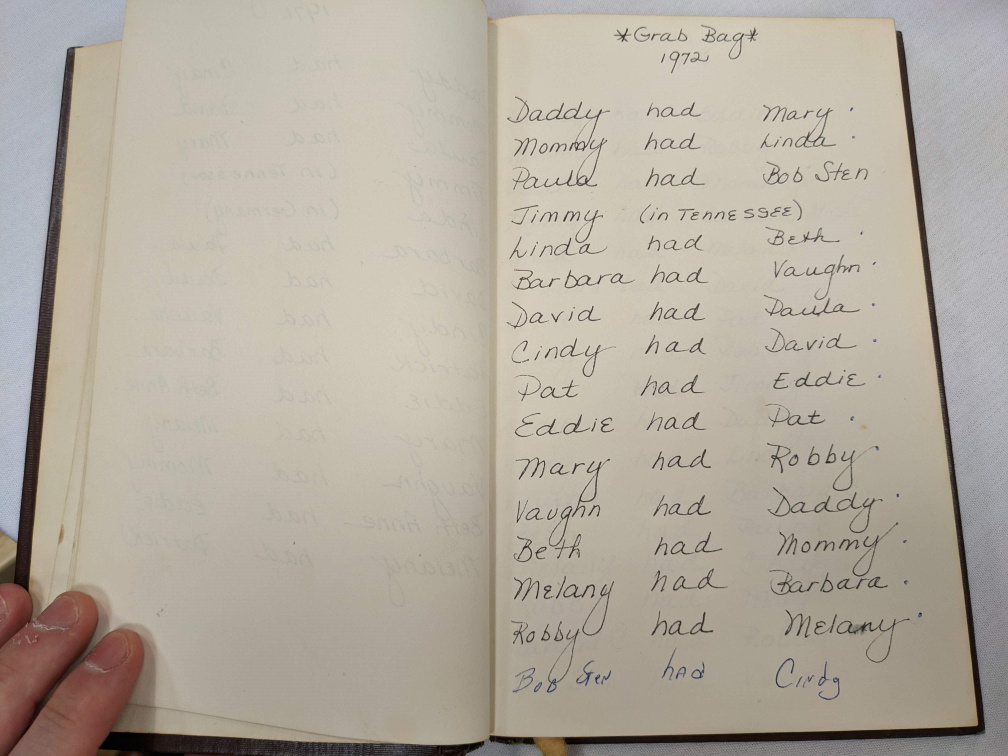 *Grab Bag*
1972
Daddy had Mary
Mommy had Linda
Paula had Bob Sten
Jimmy (in TENNESSEE)
Linda had Beth
Barbara had Vaughn
David had Paula
Cindy had David
Pat had Eddie
Eddie had Pat
Mary had Robby
Vaughn had Daddy
Beth had Mommy
Melany had Barbara
Robby had Melany
Bob Sten had Cindy